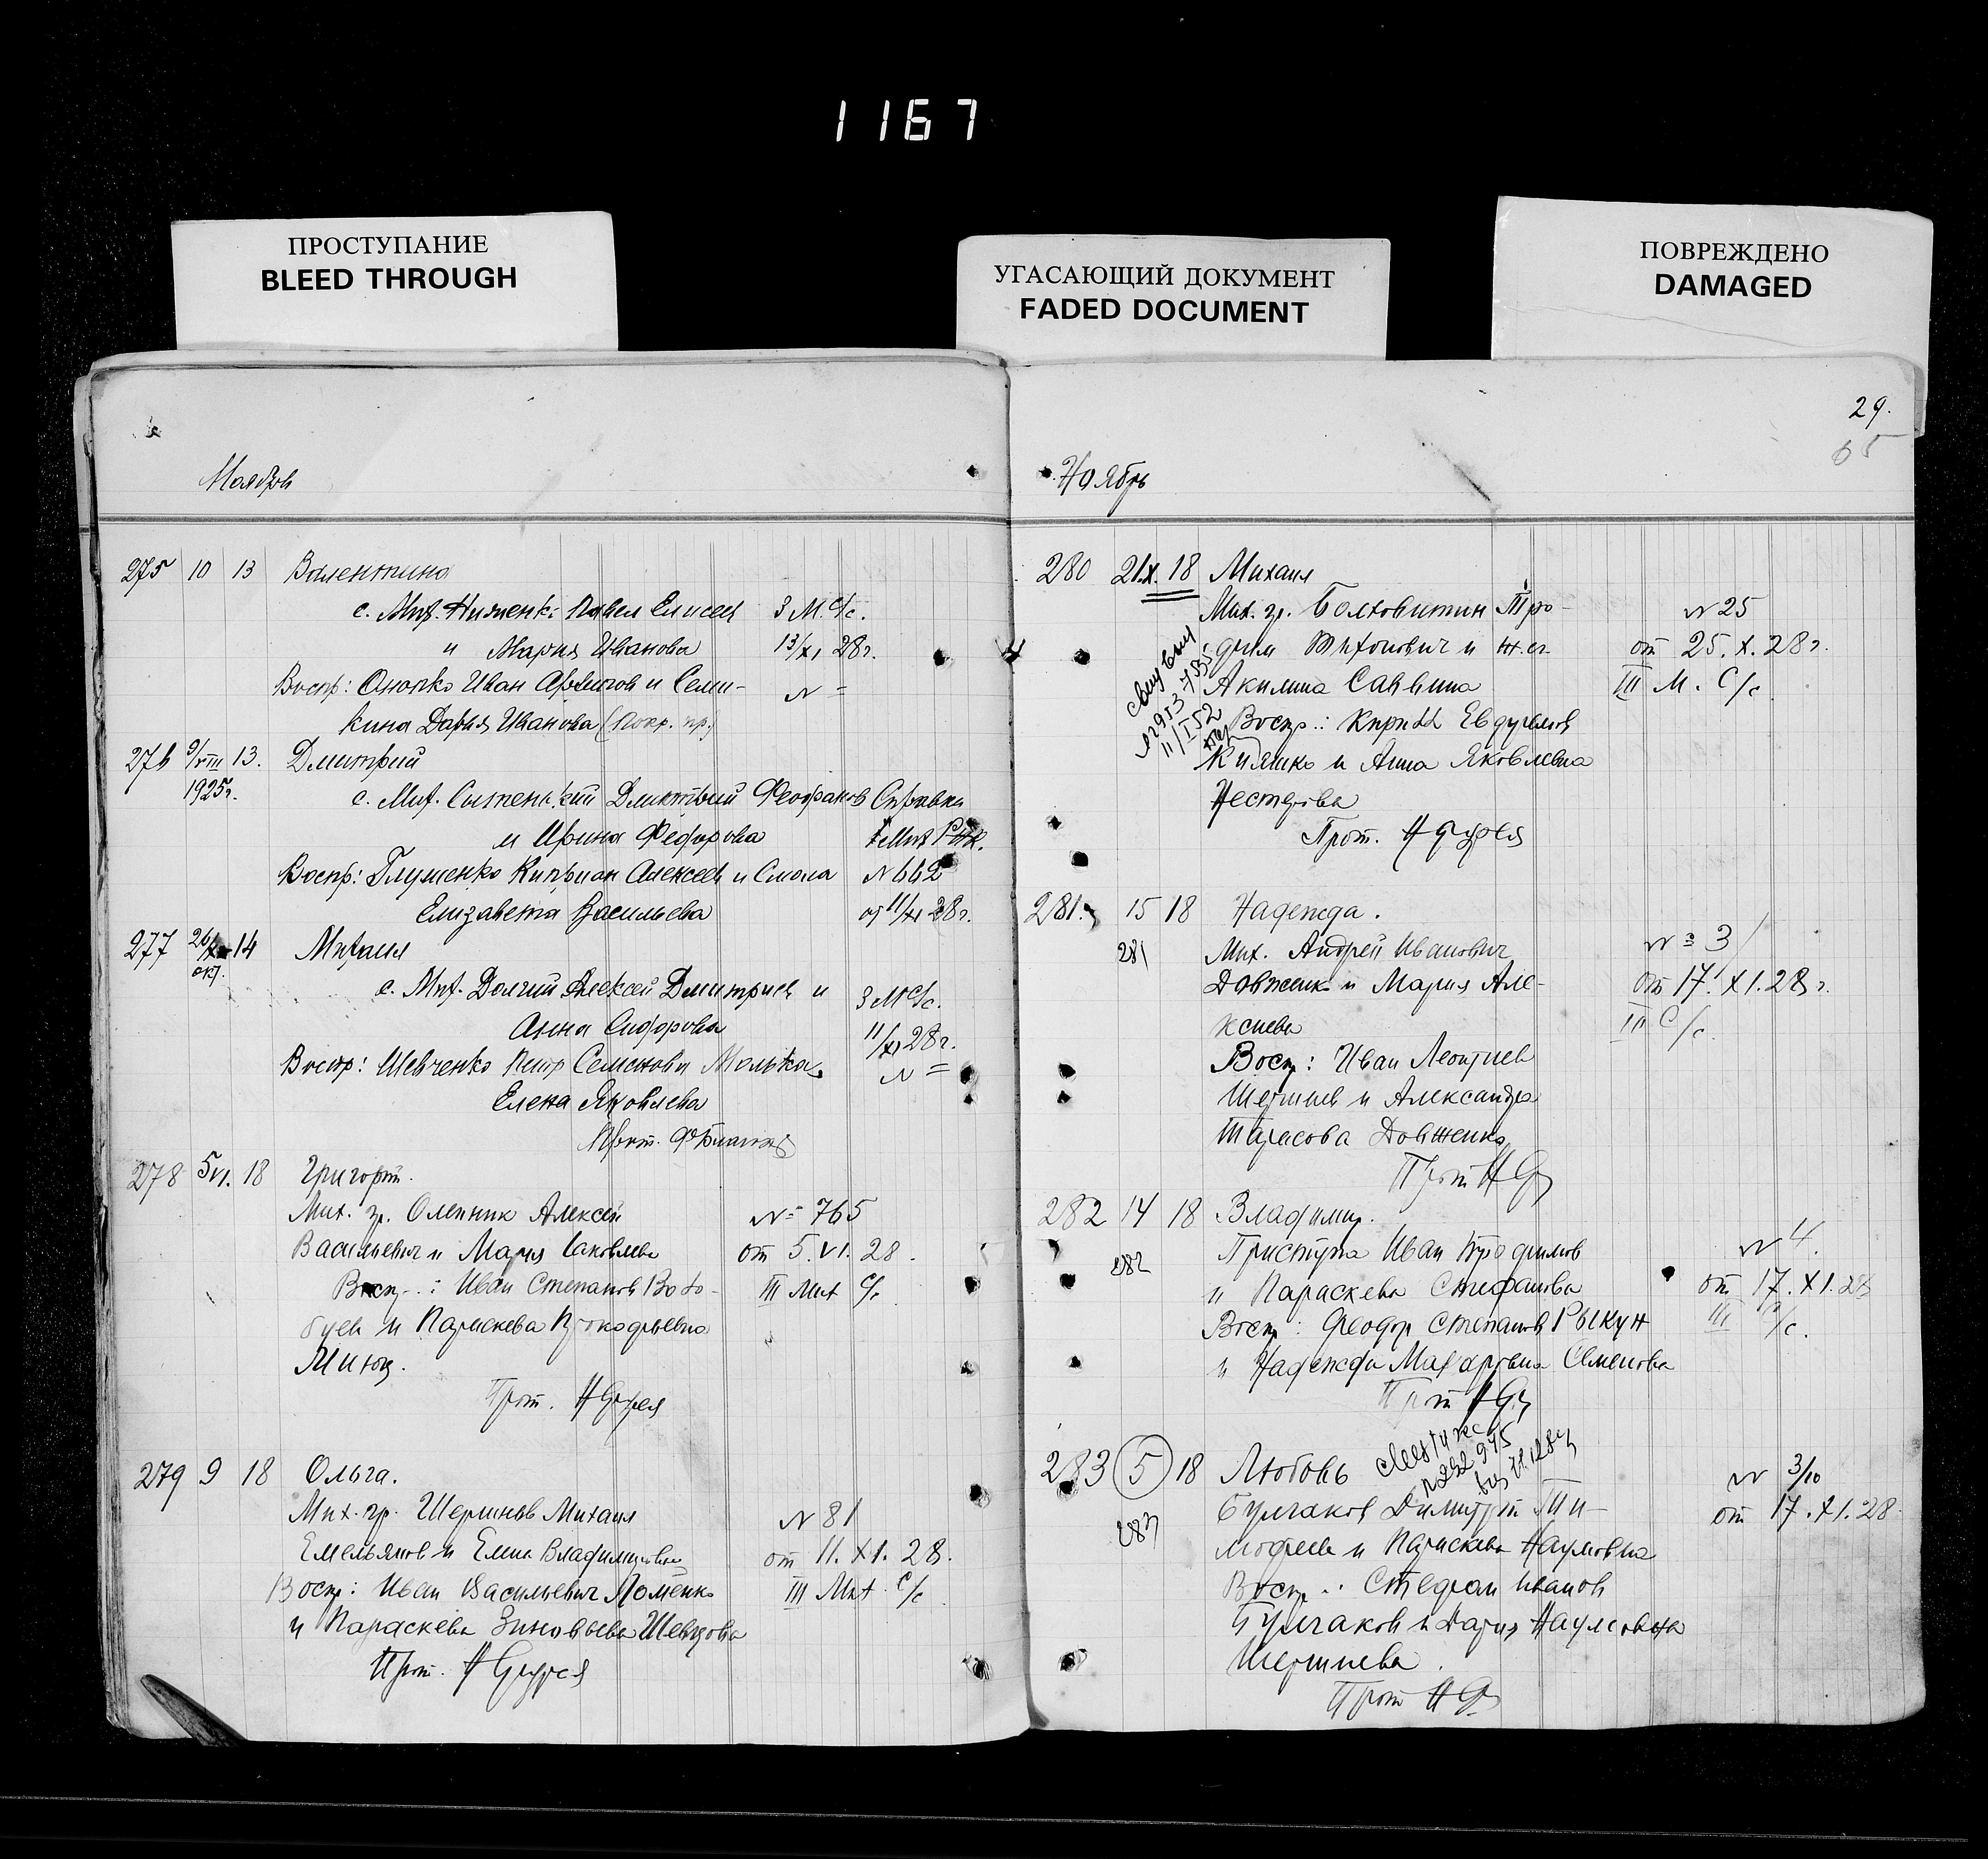 1167
ПРОСТУПАНИЕ
BLEED THROUGH
УГАСАЮЩИЙ ДОКУМЕНТ
FADED DOCUMENT
ПОВРЕЖДЕНО
DAMAGED
Ноябрь
275 10 13 Валентина
с. Мих. Павел Елисеев 3 М. С/с.
и Мария Иванова 13/XI 28 г.
Воспр: Онопко Иван Архипов и Семи- N =
кина Дарья Иванова
276 9/VIII 13. Дмитрий
1925 г. с. Мих. Дмитрий Феофанов Справка
и Ирина Федорова
Воспр: Глущенко Киприан Алексеев и Смола N 662
Елизавета Васильева от 11/XI 28 г.
277 14 Михаил
окт. с. Мих. Долгий Алексей Дмитриев и 3 М С/с.
Анна Сидорова 11/XI 28 г.
Воспр: Шевченко Петр Семенов и N =
Елена Яковлева
Прот.
278 5 VI. 18 Григорий.
Мих. гр. Олейник Алексей N = 765
Васильевич и Мария Яковлева от 5. VI. 28.
Воспр.: Иван Степанов Водо- III Мих С/с
и Параскева Прокофьевна
Прот. Н
279 9 18 Ольга.
Мих. гр. Шершнев Михаил N 81
Емельянов и Елена Владимировна от 11. XI. 28.
Воспр: Иван Васильевич III Мих. С/с
и Параскева Зиновьева Шевцова
Прот. Н
29.
65
Ноябрь
280 21.X. 18 Михаил
Мих. гр. Болховитин Тро- N 25
фим Тихонович и от 25. X. 28 г.
Акилина Саввина III М. С/с
11/I 52
Воспр.: Кирилл Евдокимов
и Анна Яковлевна
Нестерова
Прот. Н
281. 15 18 Надежда.
281 Мих. Андрей Иванович N = 3
Довженко и Мария Але- от 17. XI. 28 г.
ксиева III С/с.
Воспр: Иван Леонтиев
Шершнев и Александра
Тарасова Довженко
Прот Н
282 14 18 Владимир.
282 Приступа Иван Трофимов N 4.
и Параскева Стефанова от 17. XI. 28
Воспр: Феодор Степанов Рыкун III С/с.
и Надежда Макаровна Семенова
Прот Н
283 5 18 Любовь
283 Булгаков Димитрий Ти- N 3/10
мофеев и Параскева Наумовна от 17. XI. 28.
Воспр.: Стефан Иванов
Булгаков и Дария Наумовна
Шершнева.
Прот Н